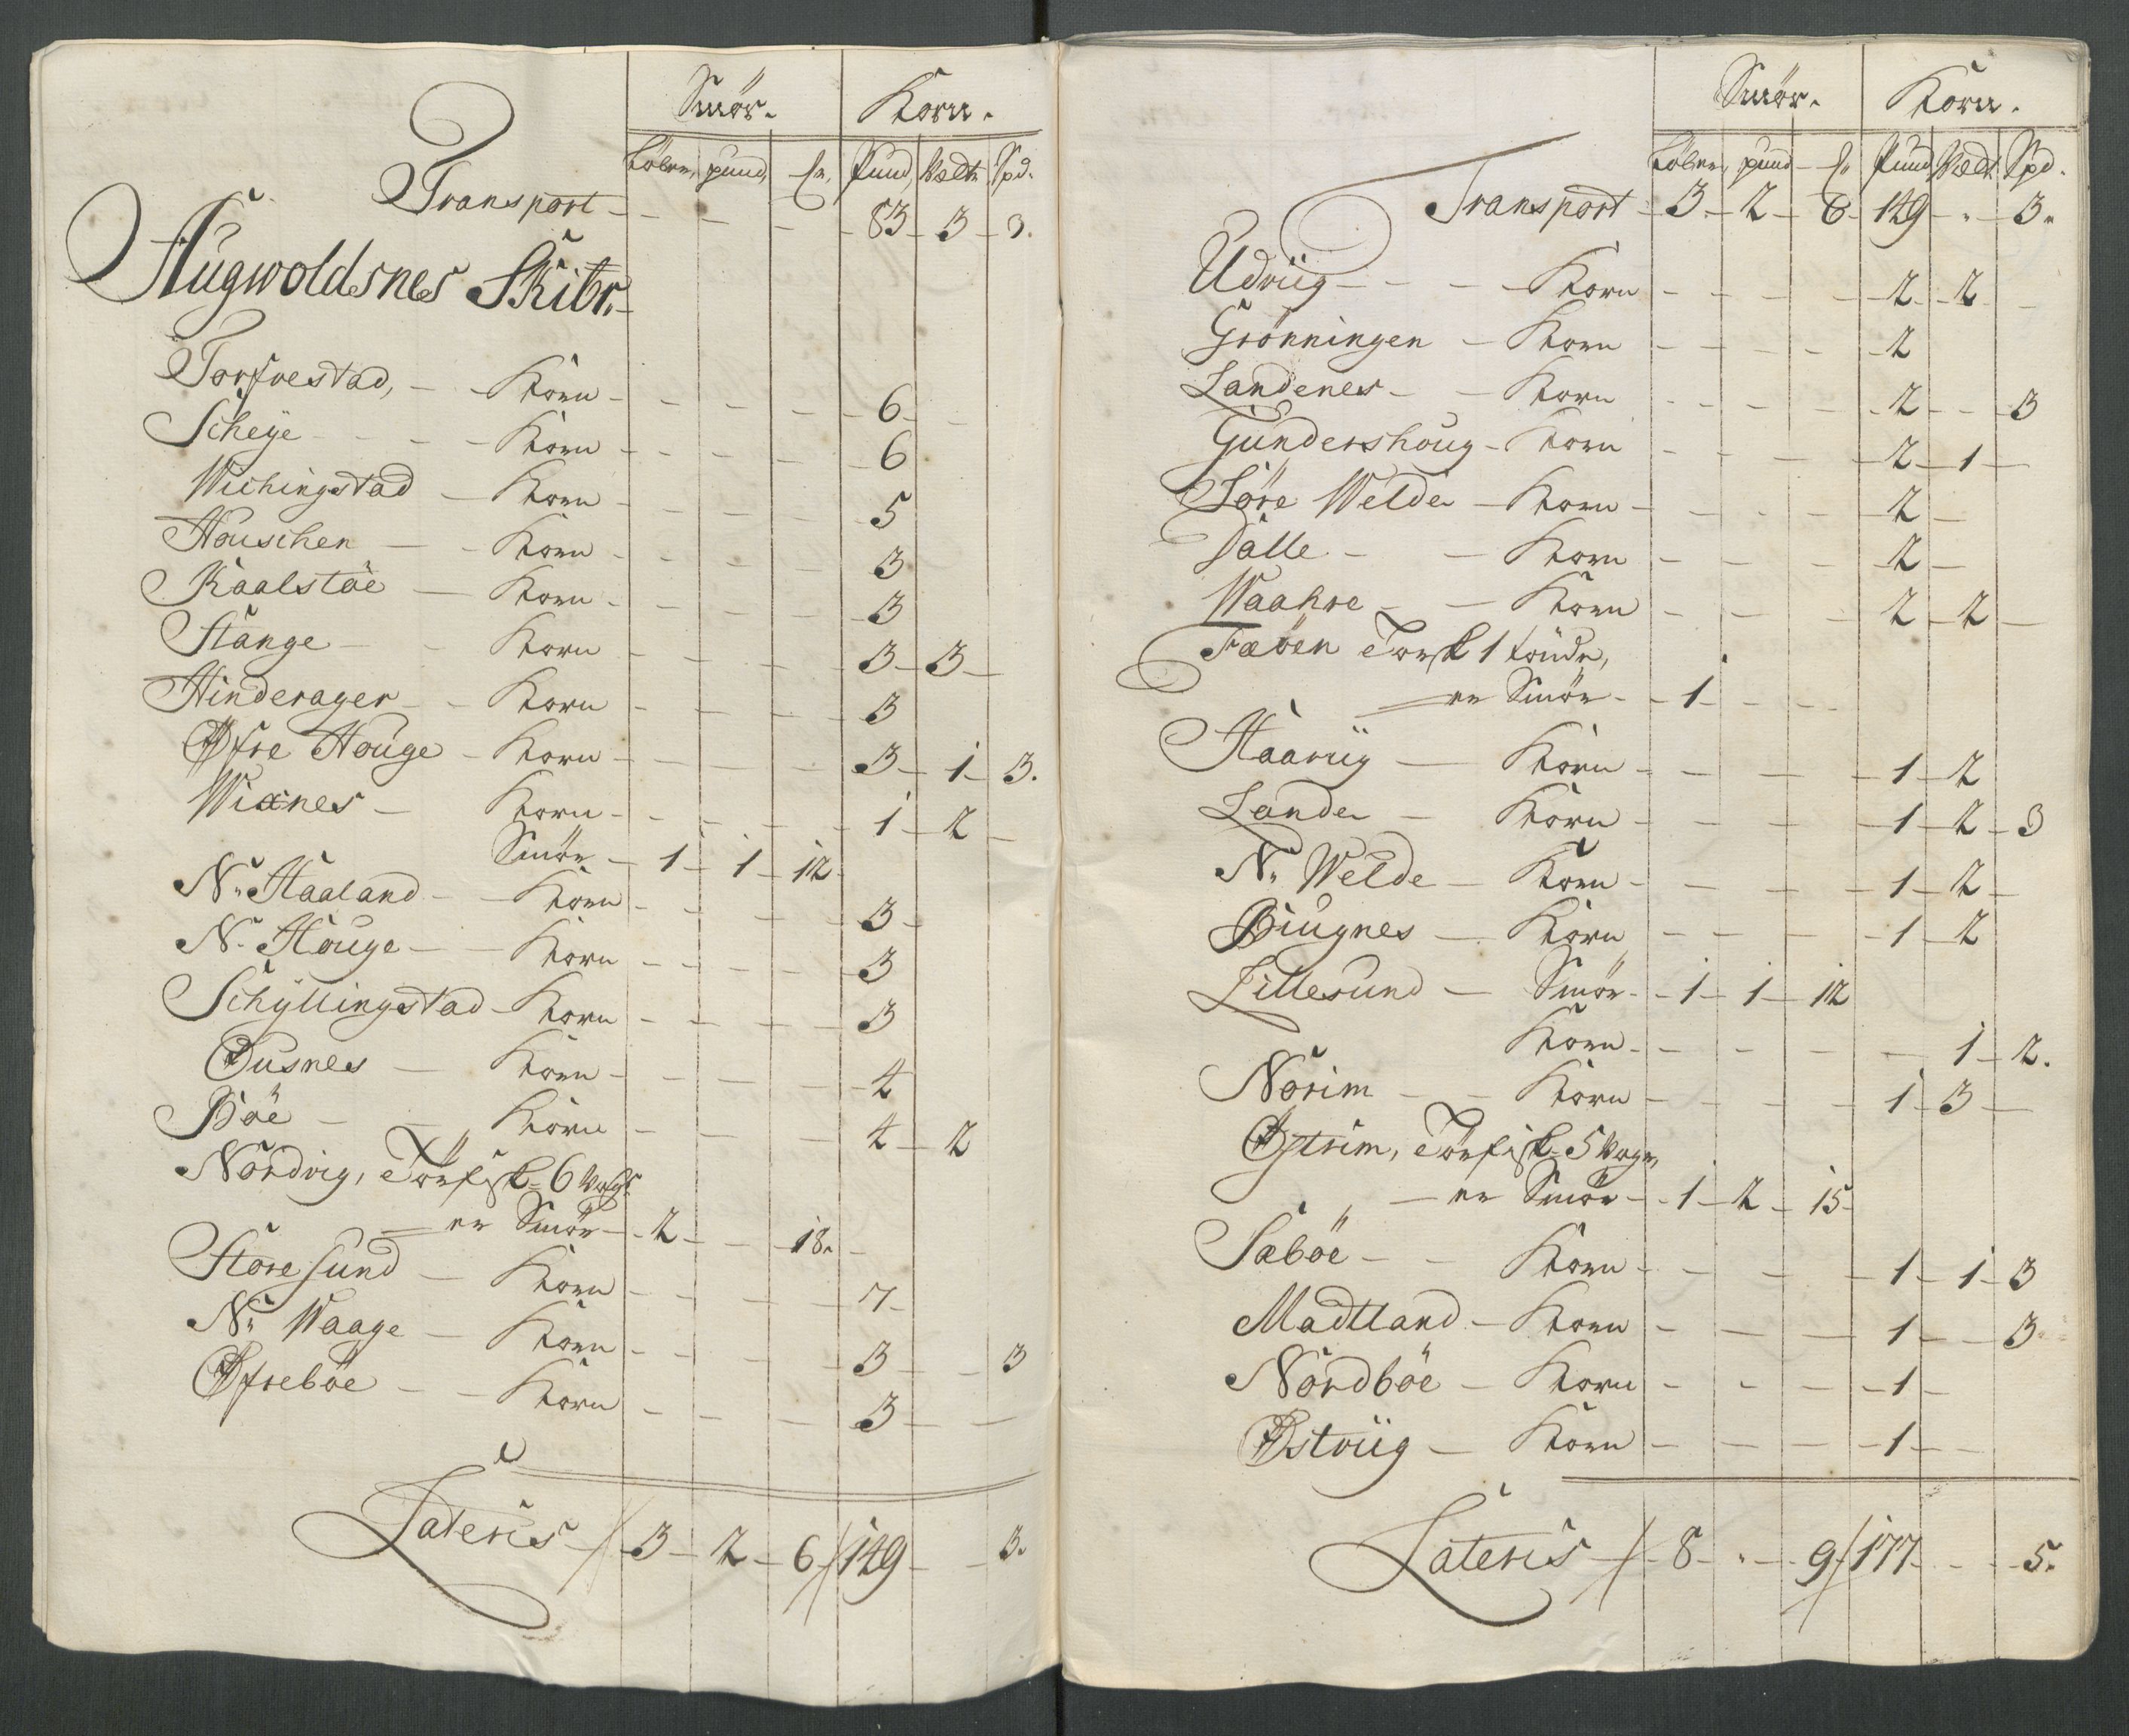 Smör. Korn.
Löber, pund, ℔, Pund, Vedt Spd.
Transport - - - 83 - 3 - 3.
Augwoldsnes Skibr.
Torfvestad, - Korn - - - - 6 -
Scheÿe - - Korn - - - - 6
Wichingstad - Korn - - - - 5
Houschen - Korn - - - - 3
Kaalstöe - Korn - - - - 3
Stange - - Korn - - - - 3 - 3 -
Hinderager - Korn - - - - 3
Øfre Houge - Korn - - - - 3 - 1 - 3.
Wixnes - Korn - - - - 1 - 2 -
Smör - 1 - 1 - 12
N: Haaland - Korn - - - - 3 -
N: Houge - Korn - - - - 3
Schÿllingstad - Korn - - - - 3
Ousnes - Korn - - - - 4
Böe - Korn - - - 4 - 2
Nordvig, Törfisk - 6 Voger
er Smör - 2 - - 18. -
Store Sund - Korn - - - - 7 -
N: Waage - Korn - - - - 3 - - 3
Øfreböe - - Korn - - - 3 - -
Lateris - 3 - 2 - 6 - 149 - - 3.
Smör. Korn.
Löber, pund - ℔ Pund Vedt Spd.
Transport - 3 - 2 - 6 - 149 - . - 3.
Udviig - - - Korn - - - - 2 - 2 -
Grönningen - Korn - - - - 2
Landenes - - Korn - - - - 2 - - 3
Gundershoug - Korn - - - 2 - 1 -
Söre Welde - Korn - - - - 2 -
Salle - - Korn - - - 2 -
Waahre - - Korn - - - 2 - 2 -
Fæöen Torsk 1 tönde,
er Smör - - 1 - - -
Haaviig - Korn - - - - 1 - 2
Lande - Korn - - - - 1 - 2 - 3
N: Welde - Korn - - - - 1 - 2 -
Biugnes - Korn - - - - 1 - 2
Lillesund - Smör - - 1 - 1 - 12
Korn - - - - - 1 - 2.
Norim - - Korn - - - - 1 - 3 -
Østrim, Törfisk - 5 Voger,
- er Smör - - 1 - 2 - 15 -
Sæböe - - Korn - - - - 1 - 1 - 3
Madtland - Korn - - - 1 - - 3
Nordböe - Korn - - - - 1 -
Østviig - Korn - - - - 1 - -
Lateris - 8 - . - 9 - 177 - - - 5.